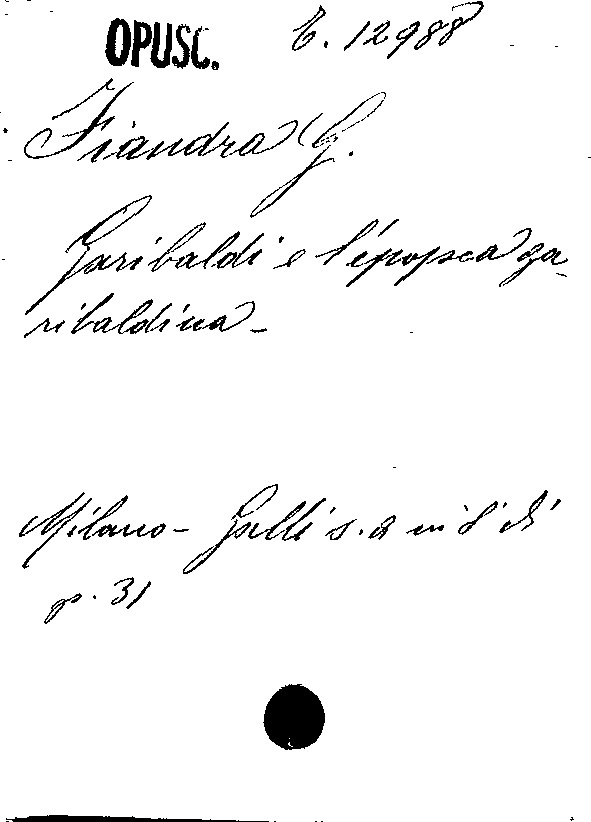 OPUSC. E. 12988
Fiandra G.
Garibaldi e l'épopea ga-
ribaldina -
Milano - Galli s. a in 8° di
p. 31